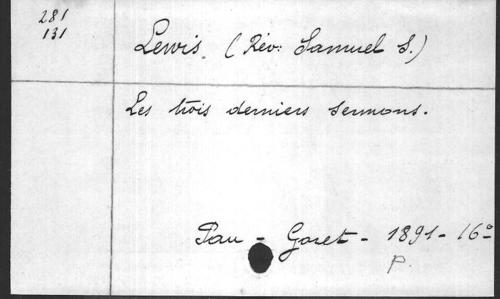 281
131
Lewis. (Rév: Samuel S.)
Les trois derniers sermons.
Pau - Garet - 1891 - 16°
P.